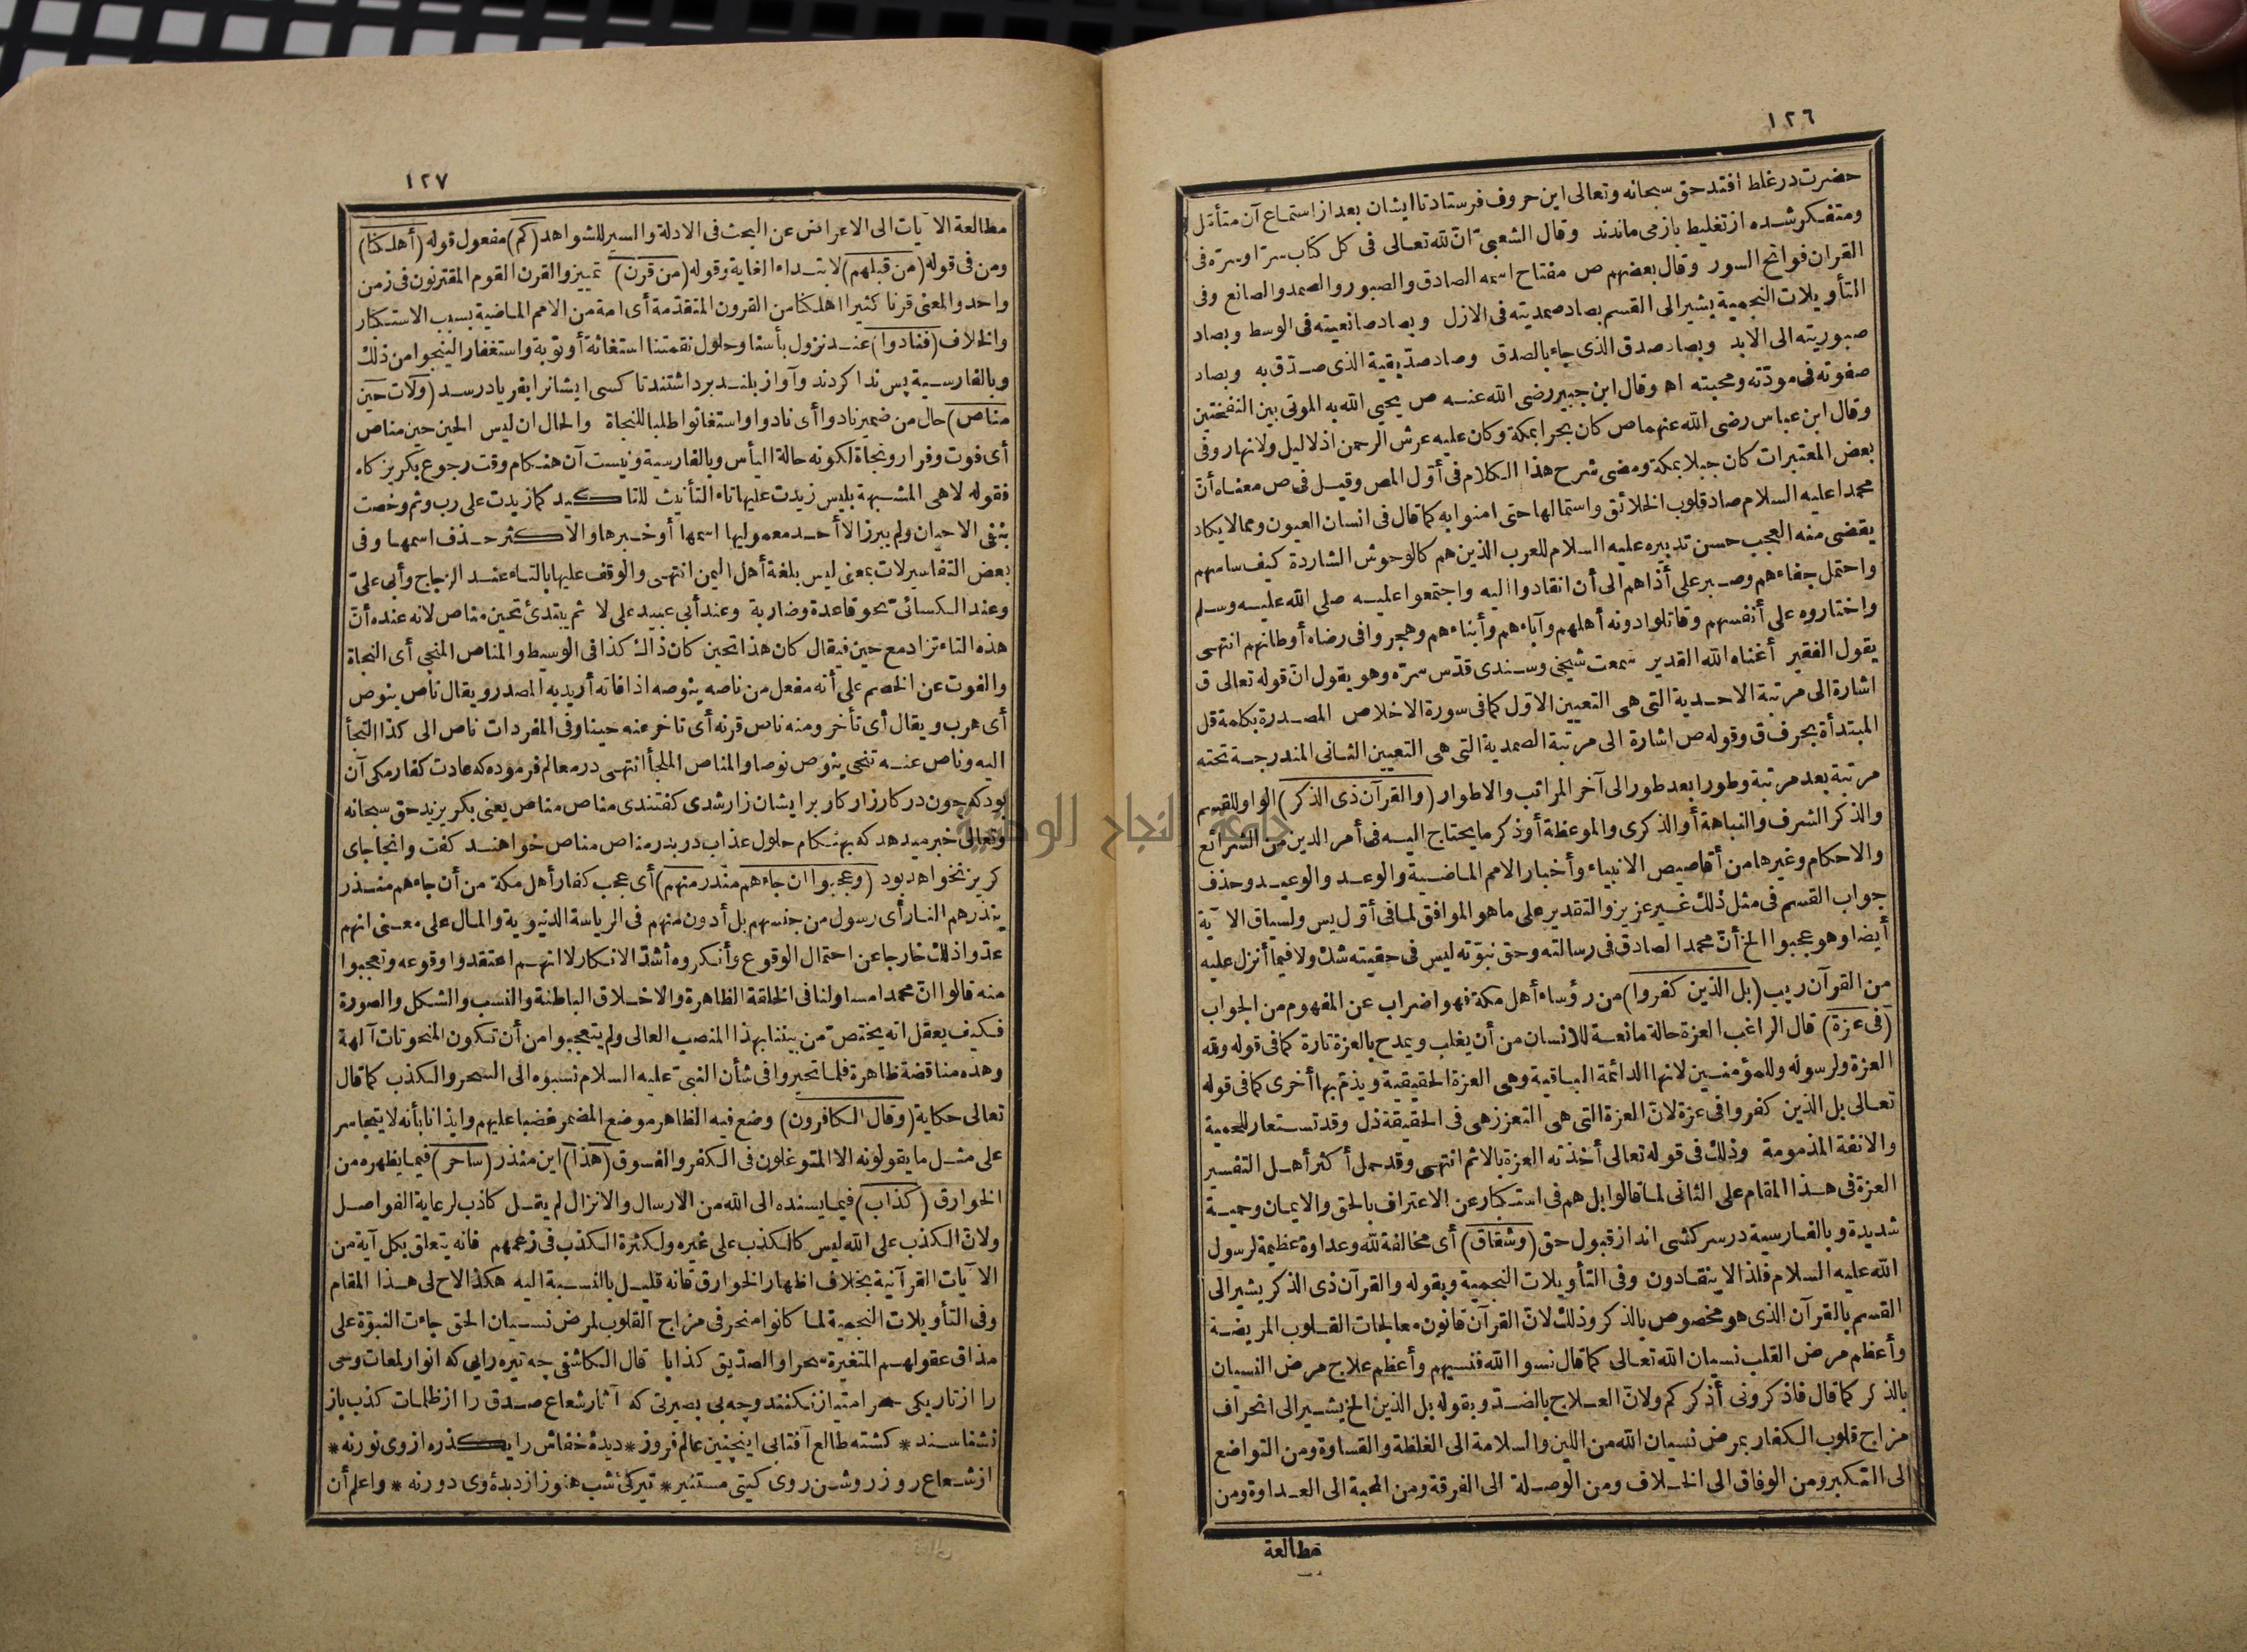 ١٢٦
حضرت در غلط افتد حق سبحانه وتعالى اين حروف فرستاد تا ايشان بعد از استماع آن متأمل
ومتفكر شده از تغليط باز مى ماندند وقال الشعبىّ انّ لله تعالى فى كل كتاب سرّا وسرّه فى
القران فواتح السور وقال بعضهم ص مفتاح اسمه الصادق والصبور والصمد والصانع وفى
التأويلات النجمية يشير الى القسم بصاد صمديته فى الازل وبصاد صانعيته فى الوسط وبصاد
صبوريته الى الابد وبصاد صدق الذى جاء بالصدق وصاد صدّيقية الذى صدّق به وبصاد
صفوته فى مودّته ومحبته اه وقال ابن جبير رضى الله عنه ص يحيي الله به الموتى بين النفختين
وقال ابن عباس رضى الله عنهما ص كان بحرا بمكة وكان عليه عرش الرحمن اذ لا ليل ولا نهار وفى
بعض المعتبرات كان جبلا بمكة ومضى شرح هذا الكلام فى أوّل المص وقيل فى ص معناه أنّ
محمدا عليه السلام صاد قلوب الخلائق واستمالها حتى امنوا به كما قال فى انسان العيون ومما لا يكاد
يقضى منه العجب حسن تدبيره عليه السلام للعرب الذين هم كالوحوش الشاردة كيف ساسهم
واحتمل جفاءهم وصبر على أذاهم الى أن انقادوا اليه واجتمعوا عليه صلى الله عليه وسلم
واختاروه على أنفسهم وقاتلوا دونه أهلهم وآباءهم وأبناءهم وهجروا فى رضاه أوطانهم انتهى
يقول الفقير أغناه الله القدير سمعت شيخى وسندى قدّس سرّه وهو يقول انّ قوله تعالى ق
اشارة الى مرتبة الاحدية التى هى التعيين الاوّل كما فى سورة الاخلاص المصدرة بكلمة قل
المبتدأة بحرف ق وقوله ص اشارة الى مرتبة الصمدية التى هى التعيين الثانى المندرجة تحته
مرتبة بعد مرتبة وطورا بعد طور الى آخر المراتب والاطوار (والقرآن ذى الذكر) الواو للقسم
والذكر الشرف والنباهة أو الذكرى والموعظة أو ذكر ما يحتاج اليه فى أمر الدين من الشرائع
والاحكام وغيرها من أقاصيص الانبياء وأخبار الامم الماضية والوعد والوعيد وحذف
جواب القسم فى مثل ذلك غير عزيز والتقدير على ما هو الموافق لما فى أوّل يس ولسياق الآية
أيضا وهو عجبوا الخ أنّ محمدا لصادق فى رسالته وحق نبوّته ليس فى حقيته شك ولا فيما أنزل عليه
من القرآن ريب (بل الذين كفروا) من رؤساء أهل مكة فهو اضراب عن المفهوم من الجواب
(فى عزة) قال الراغب العزة حالة مانعة للانسان من أن يغلب ويمدح بالعزة تارة كما فى قوله ولله
العزة ولرسوله وللمؤمنين لانها الدائمة الباقية وهى العزة الحقيقية ويذمّ بها أخرى كما فى قوله
تعالى بل الذين كفروا فى عزة لانّ العزة التى هى التعزز هى فى الحقيقة ذل وقد تستعار للحمية
والانفة المذمومة وذلك فى قوله تعالى أخذته العزة بالاثم انتهى وقد حمل أكثر أهل التفسير
العزة فى هذا المقام على الثانى لما قالوا بل هم فى استكبار عن الاعتراف بالحق والايمان وحمية
شديدة وبالفارسية در سركشى اند از قبول حق (وشقاق) أى مخالفة لله وعداوة عظيمة لرسول
الله عليه السلام فلذا لا ينقادون وفى التأويلات النجمية وبقوله والقرآن ذى الذكر يشير الى
القسم بالقرآن الذى هو مخصوص بالذكر وذلك لانّ القرآن قانون معالجات القلوب المريضة
وأعظم مرض القلب نسيان الله تعالى كما قال نسوا الله فنسيهم وأعظم علاج مرض النسيان
بالذكر كما قال فاذكرونى أذكركم ولانّ العلاج بالضدّ وبقوله بل الذين الخ يشير الى انحراف
مزاج قلوب الكفار بمرض نسيان الله من اللين والسلامة الى الغلظة والقساوة ومن التواضع
الى التكبر ومن الوفاق الى الخلاف ومن الوصلة الى الفرقة ومن المحبة الى العداوة ومن
مطالعة
١٢٧
مطالعة الآيات الى الاعراض عن البحث فى الادلة والسير للشواهد (كم) مفعول قوله (أهلكنا)
ومن فى قوله (من قبلهم) لابتداء الغاية وقوله (من قرن) تمييز والقرن القوم المقترنون فى زمن
واحد والمعنى قرنا كثيرا اهلكنا من القرون المتقدّمة أى امة من الامم الماضية بسبب الاستكبار
والخلاف (فنادوا) عند نزول بأسنا وحلول نقمتنا استغاثة أو توبة واستغفارا لينجوا من ذلك
وبالفارسية پس ندا كردند وآواز بلند برداشتند تا كسى ايشانرا بفرياد رسد (ولات حين
مناص) حال من ضمير نادوا أى نادوا واستغاثوا طلبا للنجاة والحال ان ليس الحين حين مناص
أى فوت وفرار ونجاة لكونه حالة اليأس وبالفارسية ونيست آن هنكام وقت رجوع بكريزكاه
فقوله لا هى المشبهة بليس زيدت عليها تاء التأنيث للتاكيد كما زيدت على رب وثم وخصت
بنفى الاحيان ولم يبرز الا أحد معموليها اسمها أو خبرها والاكثر حذف اسمها وفى
بعض التفاسير لات بمعنى ليس بلغة أهل اليمن انتهى والوقف عليها بالتاء عند الزجاج وأبى علىّ
وعند الكسائىّ نحو قاعدة وضاربة وعند أبى عبيد على لا ثم يبتدئ تحين مناص لانه عنده أنّ
هذه التاء تزاد مع حين فيقال كان هذا تحين كان ذاك كذا فى الوسيط والمناص المنجى أى النجاة
والفوت عن الخصم على أنه مفعل من ناصه ينوصه اذا فاته أريد به المصدر ويقال ناص ينوص
أى هرب ويقال أى تأخر ومنه ناص قرنه أى تاخر عنه حينا وفى المفردات ناص الى كذا التجأ
اليه وناص عنه تنحى ينوص نوصا والمناص الملجأ انتهى در معالم فرموده كه عادت كفار مكى آن
بود كه چون در كارزار كار بر ايشان زار شدى كفتندى مناص مناص يعنى بكريزيد حق سبحانه
وتعالى خبر ميدهد كه بهنكام حلول عذاب در بدر مناص مناص خواهند كفت وانجا جاى
كريز نخواهد بود (وعجبوا ان جاءهم منذر منهم) أى عجب كفار أهل مكة من أن جاءهم منذر
ينذرهم النار أى رسول من جنسهم بل أدون منهم فى الرياسة الدنيوية والمال على معنى انهم
عدّوا ذلك خارجا عن احتمال الوقوع وأنكروه أشدّ الانكار لا انهم اعتقدوا وقوعه وتعجبوا
منه قالوا انّ محمدا مساو لنا فى الخلقة الظاهرة والاخلاق الباطنة والنسب والشكل والصورة
فكيف يعقل انه يختصّ من بيننا بهذا المنصب العالى ولم يتعجبوا من أن تكون المنحوتات آلهة
وهذه مناقضة ظاهرة فلما تحيروا فى شأن النبىّ عليه السلام نسبوه الى السحر والكذب كما قال
تعالى حكاية (وقال الكافرون) وضع فيه الظاهر موضع المضمر غضبا عليهم وايذانا بأنه لا يتجاسر
على مثل ما يقولونه الا المتوغلون فى الكفر والفسوق (هذا) اين منذر (ساحر) فيما يظهره من
الخوارق (كذاب) فيما يسنده الى الله من الارسال والانزال لم يقل كاذب لرعاية الفواصل
ولانّ الكذب على الله ليس كالكذب على غيره ولكثرة الكذب فى زعمهم فانه يتعلق بكل آية من
الآيات القرآنية بخلاف اظهار الخوارق فانه قليل بالنسبة اليه هكذا لاح لى هذا المقام
وفى التأويلات النجمية لما كانوا منحرفى مزاج القلوب لمرض نسيان الحق جاءت النبوّة على
مذاق عقولهم المتغيرة سحرا والصدّيق كذابا قال الكاشفى چه تيره رايى كه انوار لمعات وحى
را از تاريكى سحر امتياز نكنند وچه بى بصيرتى كه آثار شعاع صدق را از ظلمات كذب باز
نشناسند * كشته طالع آفتابى اينچنين عالم فروز * ديدۀ خفاش را يكذره از وى نورنه *
از شعاع روز روشن روى كيتى مستنير * تيركى شب هنوز از ديدۀ وى دورنه * واعلم أن
جامعة النجاح الوطنية